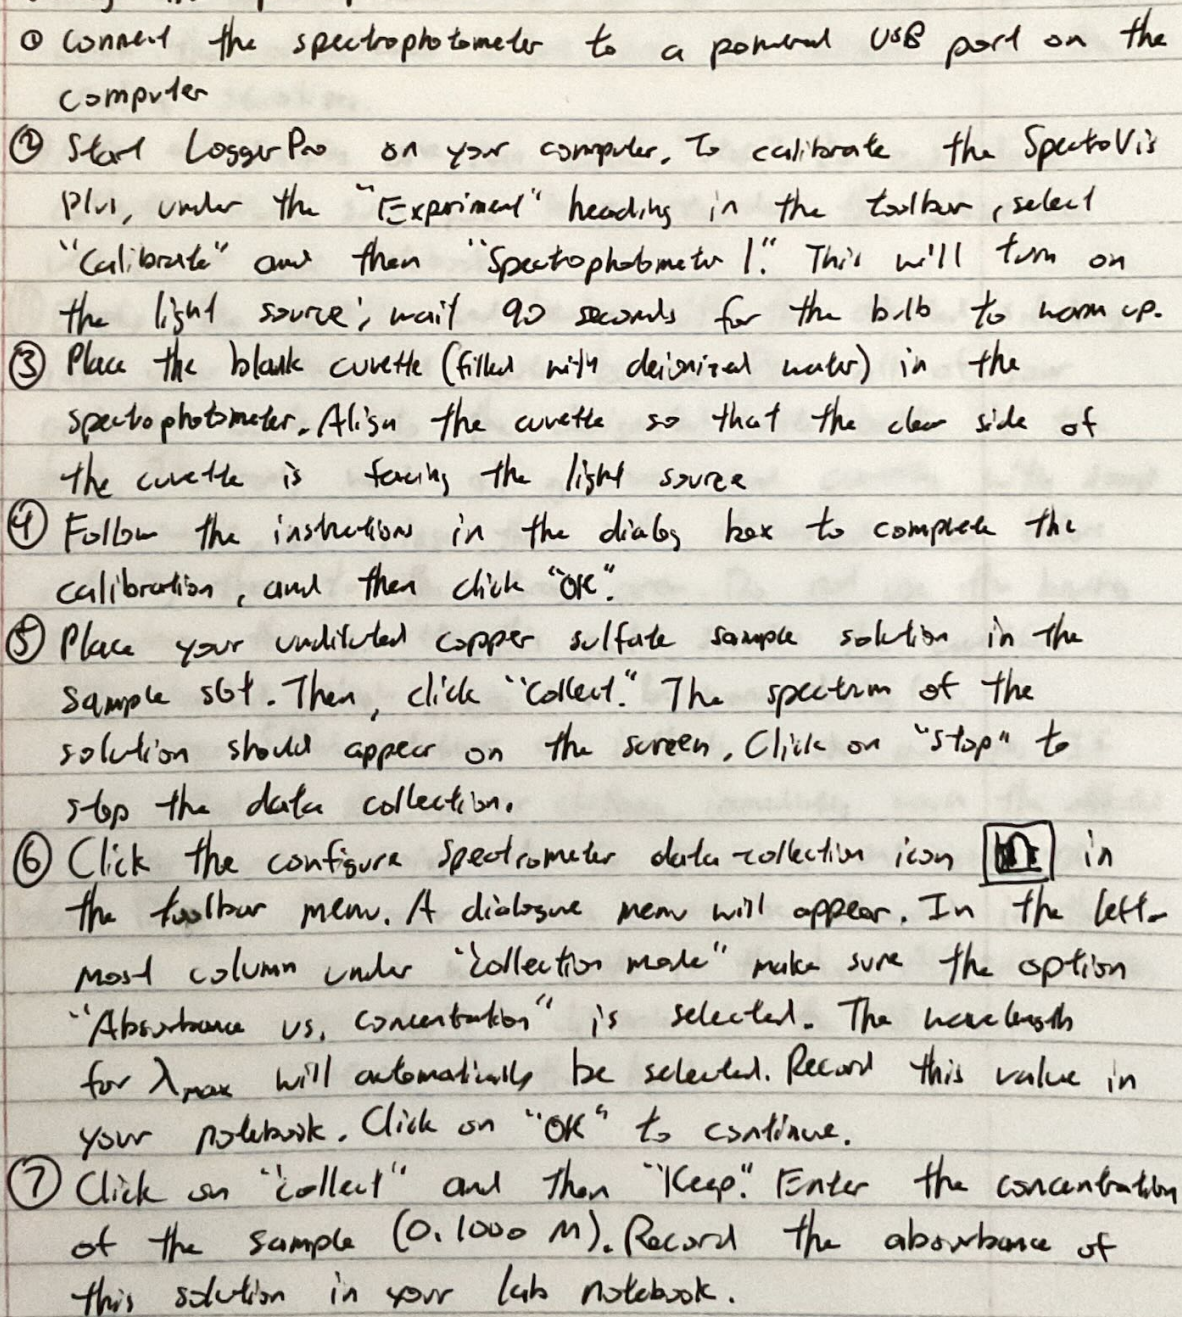 ① Connect the spectrophotometer to a powered USB port on the
computer
② Start LoggerPro on your computer. To calibrate the SpectroVis
Plus, under the "Experiment" heading in the toolbar, select
"Calibrate" and then "Spectrophotometer 1." This will turn on
the light source; wait 90 seconds for the bulb to warm up.
③ Place the blank cuvette (filled with deionized water) in the
spectrophotometer. Align the cuvette so that the clear side of
the cuvette is facing the light source
④ Follow the instructions in the dialog box to complete the
calibration, and then click "OK".
⑤ Place your undiluted copper sulfate sample solution in the
sample slot. Then, click "Collect." The spectrum of the
solution should appear on the screen. Click on "stop" to
stop the data collection.
⑥ Click the configure Spectrometer data-collection icon in
the toolbar menu. A dialogue menu will appear. In the left-
most column under "Collection mode" make sure the option
"Absorbance vs. concentration" is selected. The wavelength
for λmax will automatically be selected. Record this value in
your notebook. Click on "OK" to continue.
⑦ Click on "collect" and then "Keep." Enter the concentration
of the sample (0.1000 M). Record the absorbance of
this solution in your lab notebook.